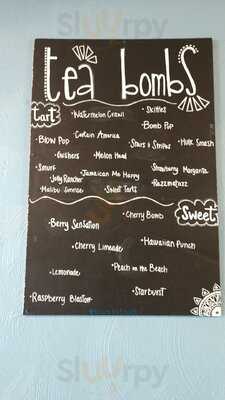 Sluurpy
tea bombs
tart
•Watermelon Crawl
•Skittles
•Captain America
•Bomb Pop
•Blow Pop
•Stars & Stripes
•Hulk Smash
•Gushers
•Melon Head
•Smurf
•Strawberry Margarita
•Jolly Rancher
•Jamaican Me Happy
•Malibu Sunrise
•Sweet Tarts
•Razzmatazz
Sweet
•Cherry Bomb
•Berry Sensation
•Cherry Limeade
•Hawaiian Punch
•Lemonade
•Peach on the Beach
•Starburst
•Raspberry Blaster
Sluurpy